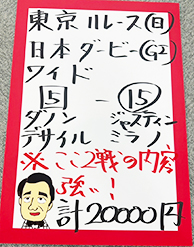 東京11レース(日)
日本ダービー(G2)
ワイド
5 - 15
ダノン ジャスティン
デサイル ミラノ
※ここ2戦の内容
強い!
計20000円